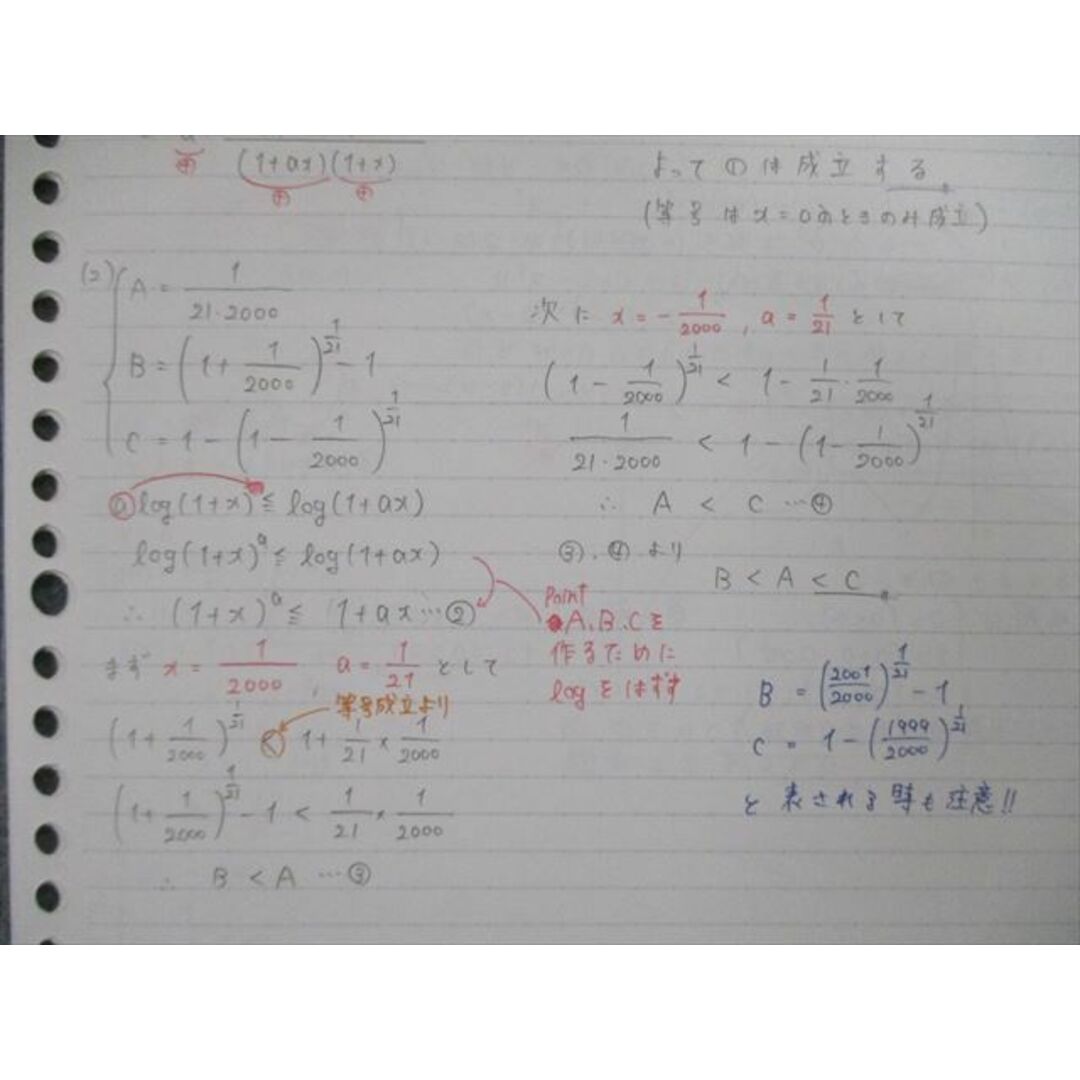 (1+ax)(1+x)
⊕ ⊕ ⊕
よって①は成立する
(等号はx=0のときのみ成立)
(2) A = 1/(21・2000)
B = (1+1/2000)^(1/21) - 1
C = 1-(1-1/2000)^(1/21)
ⓐlog(1+x) ≦ log(1+ax)
log(1+x)^a ≦ log(1+ax)
∴ (1+x)^a ≦ 1+ax…②
まず x = 1/2000, a = 1/21 として
等号成立より
(1+1/2000)^(1/21) < 1+1/21×1/2000
(1+1/2000)^(1/21) - 1 < 1/21×1/2000
∴ B < A …③
次に x = -1/2000, a = 1/21 として
(1-1/2000)^(1/21) < 1-1/21・1/2000
1/(21・2000) < 1-(1-1/2000)^(1/21)
∴ A < C …④
③、④より
B < A < C
Point
A、B、Cを
作るために
logをはずす
B = (2001/2000)^(1/21) - 1
C = 1-(1999/2000)^(1/21)
と表される時も注意!!